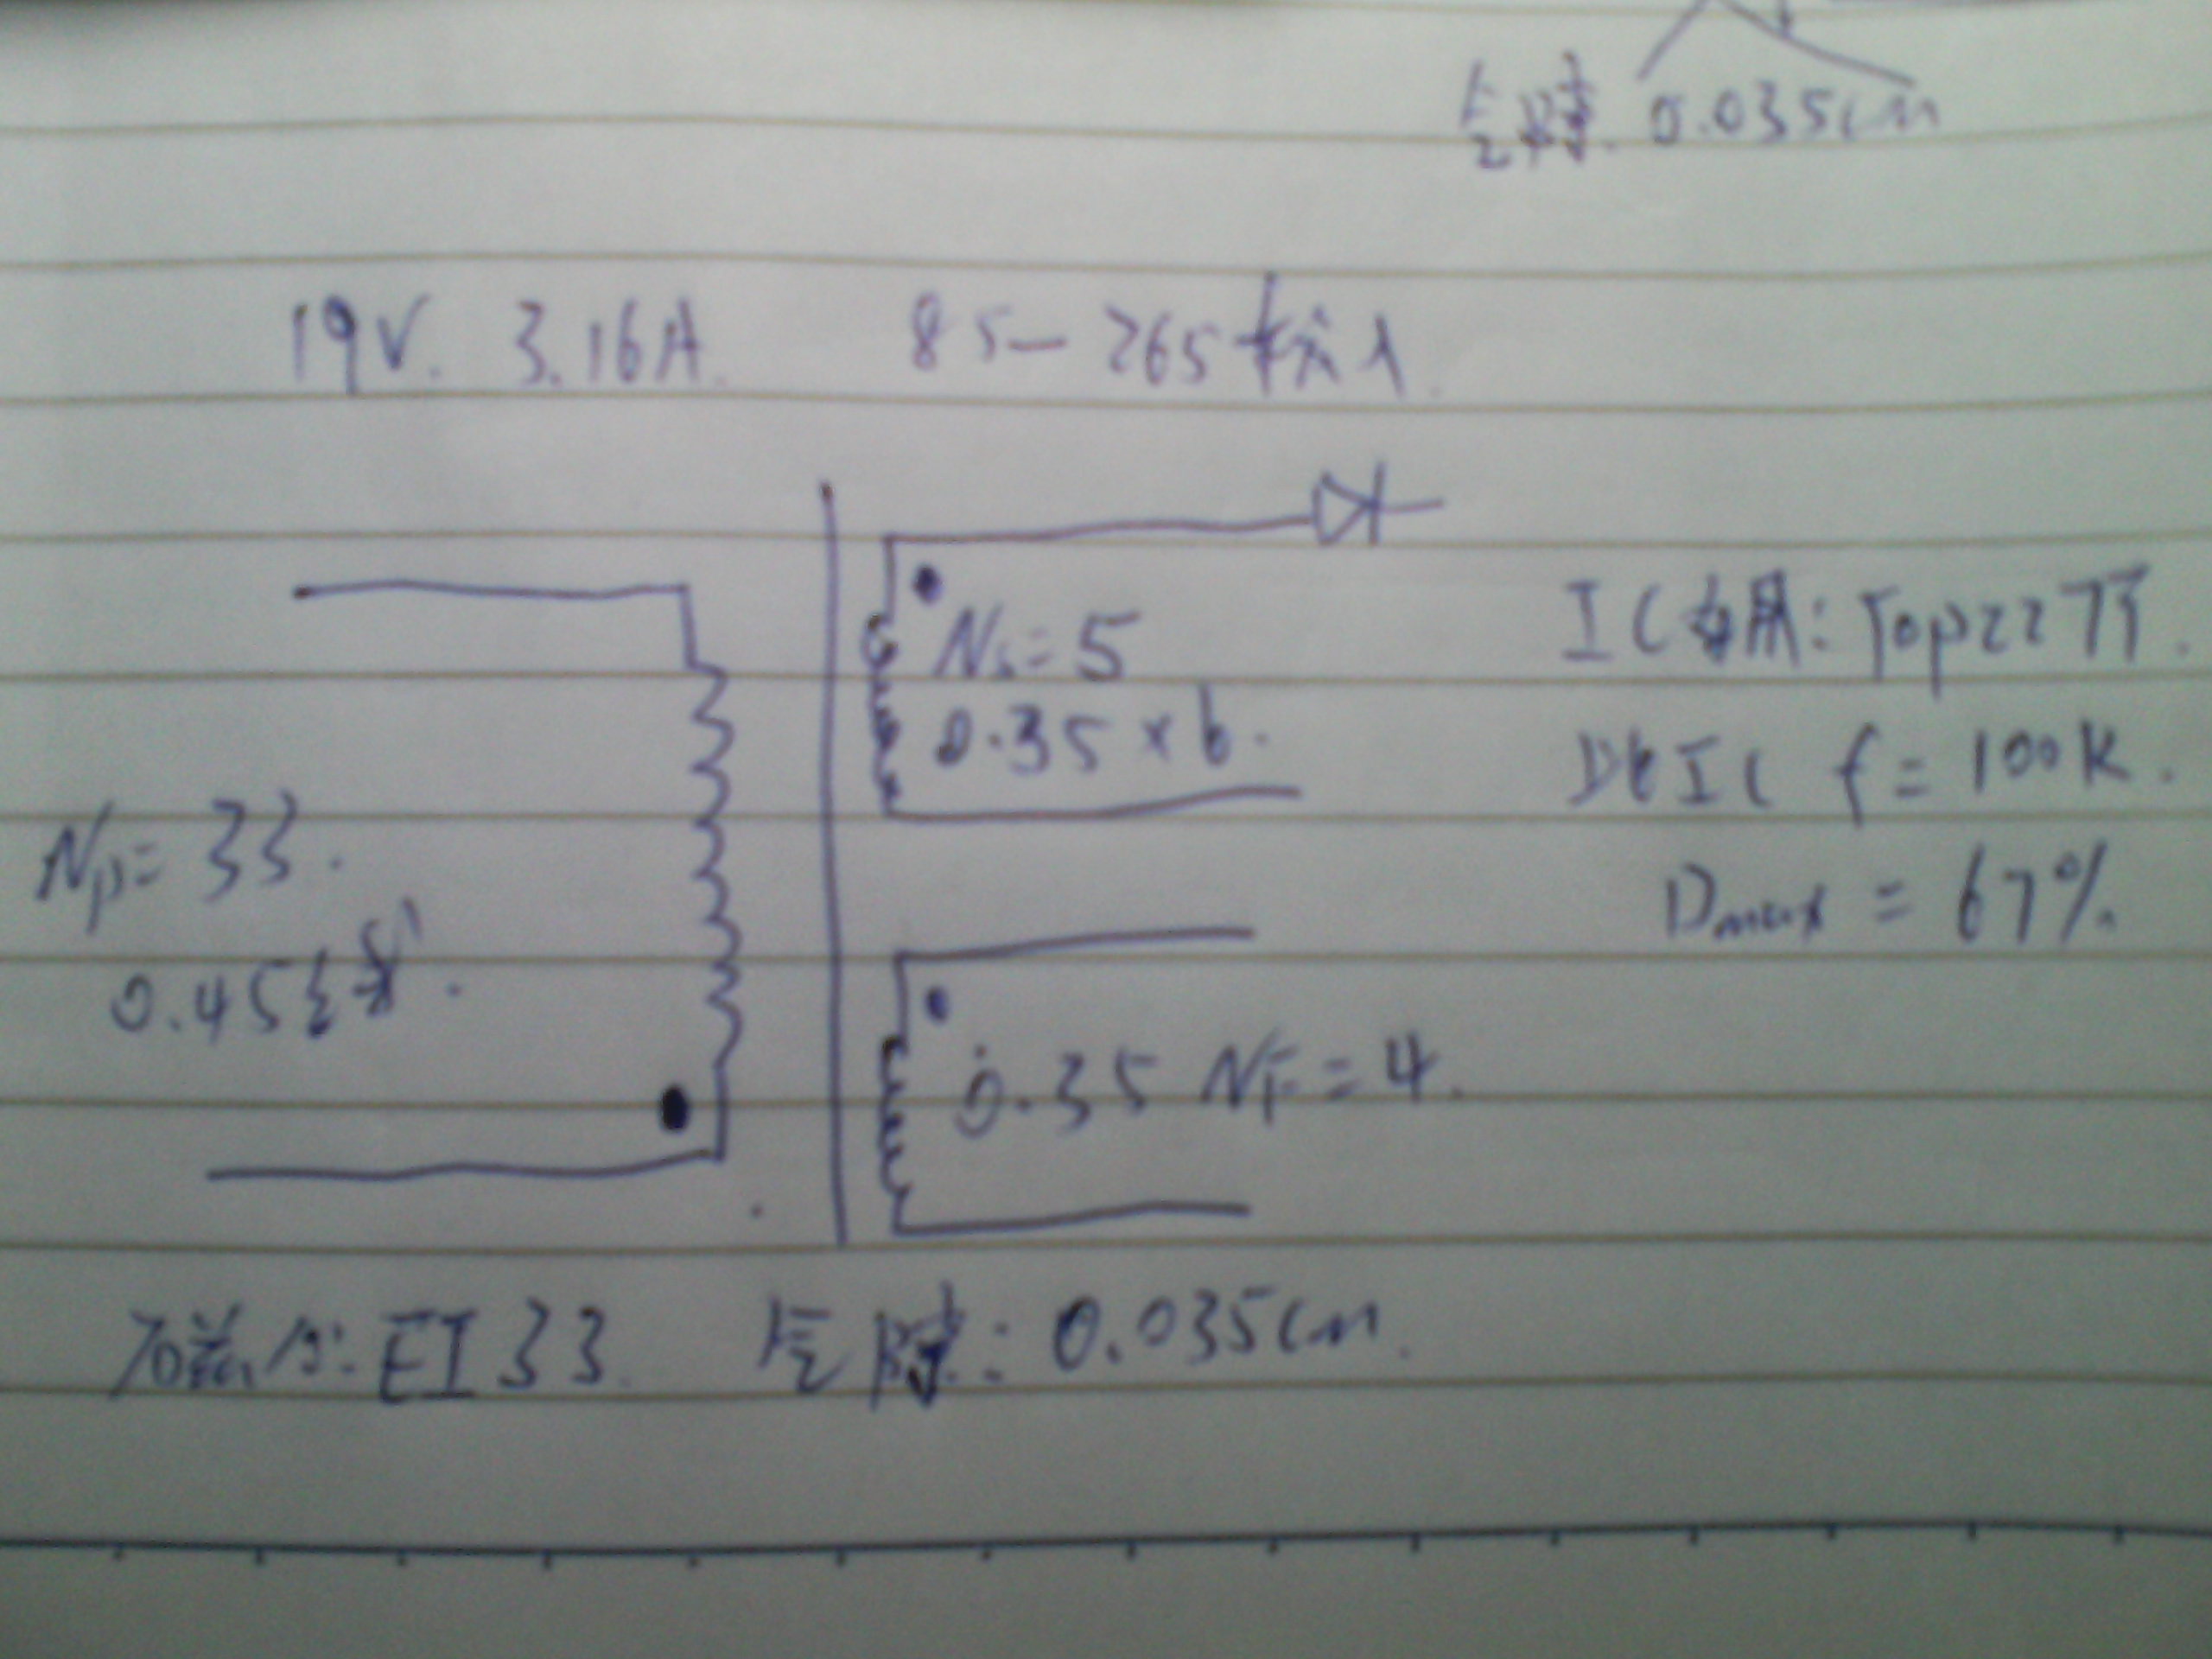 气隙. 0.035cm
19V. 3.16A. 85-265 输入.
Ns=5
0.35 x 6.
IC 用: Top227Y.
此IC f = 100K.
Dmax = 67%.
Np= 33.
0.45线.
0.35 NF = 4.
磁心: EI 33. 气隙: 0.035cm.